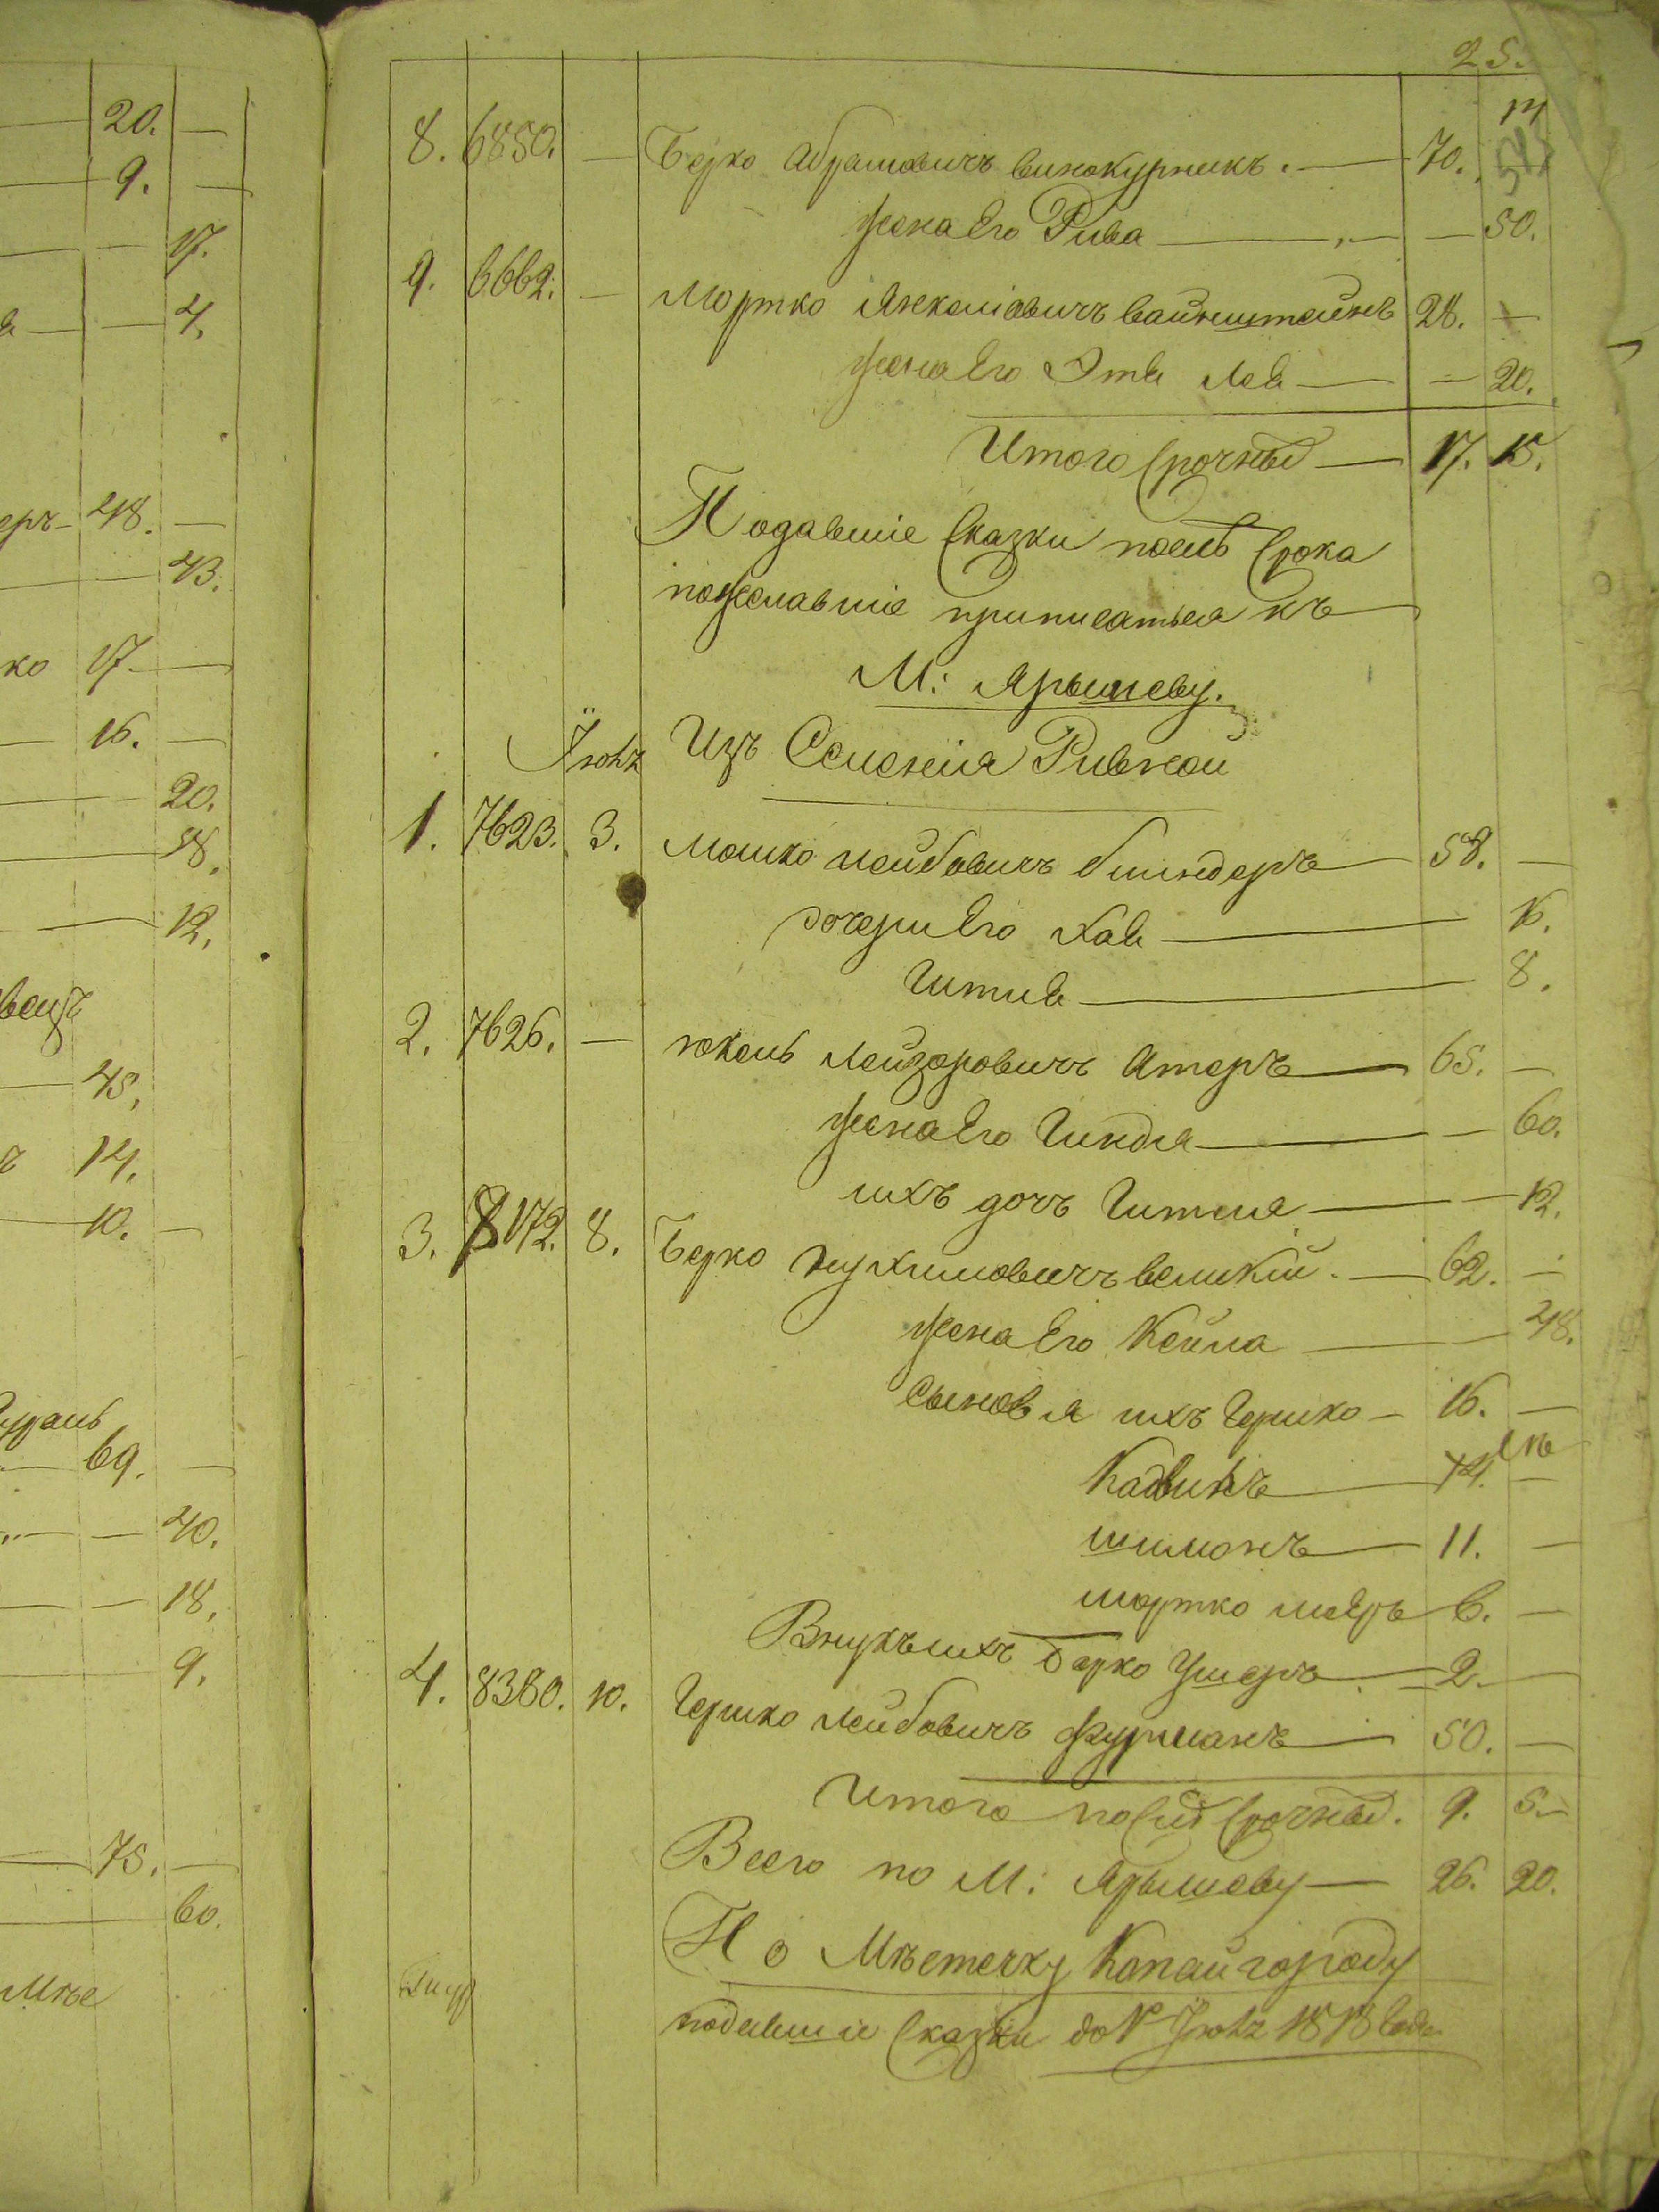 20. —
9. —
17.
4.
еръ 48. —
43.
ко 17 —
16. —
20.
18.
12.
45.
14.
10. —
69. —
40.
18.
9.
75. —
60.
25.
8. 6850. — Берко Абрамовичъ винокурникъ. — 70.
жена Его Рива — 50.
9. 6662. — Мортко Янкелiовичъ вайнштейнъ 28. —
жена ЕгоЭтя Леа — 20.
Итого срочныхъ — 17. 15.
Подавшіе сказки послѣ срока
пожелавшіе приписаться къ
М: Ярышеву.
Іюня Изъ Селенія Ривной
1. 7623. 3. мошко лейбовичъ блиндеръ — 58. —
дочери Его хая — 16.
Гитля — 8.
2. 7626. — Лейзоровичъ — 65. —
жена Его Гиндля — 60.
ихъ дочь Гитля — 12.
3. 8172. 8. Берко Нухимовичъ великій. — 62. —
жена Его Кейла — 48.
Сыновья ихъ Гершко — 16. —
14. —
шимонъ — 11. —
мортко мееръ 6. —
Внукъ ихъ Берко Ушеръ — 2. —
4. 8380. 10. Гершко лейбовичъ фурманъ — 50. —
Итого послѣ срочныхъ. 9. 5. —
Всего по М: Ярышеву — 26. 20.
По Мѣстечку Копайгороду
подавшіе сказки до 1 Іюня 1818 Года